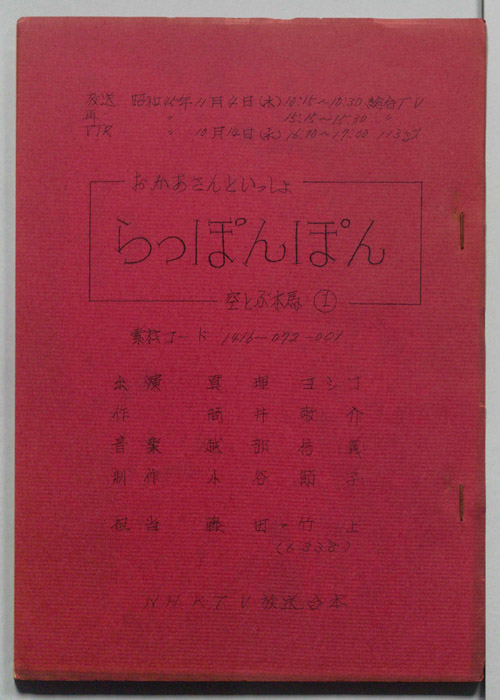 放送 昭和45年11月4日(水)10:15〜10:30 総合TV
再 〃 15:15〜15:30 〃
VTR 〃 10月14日(水)16.00〜17.00 113st
おかあさんといっしょ
らっぽんぽん
空とぶ木馬 ①
業務コード 1416-072-001
出演 真理ヨシコ
作 筒井敬介
音楽 越部信義
制作 小谷節子
担当 藤田・竹上
NHKTV放送台本